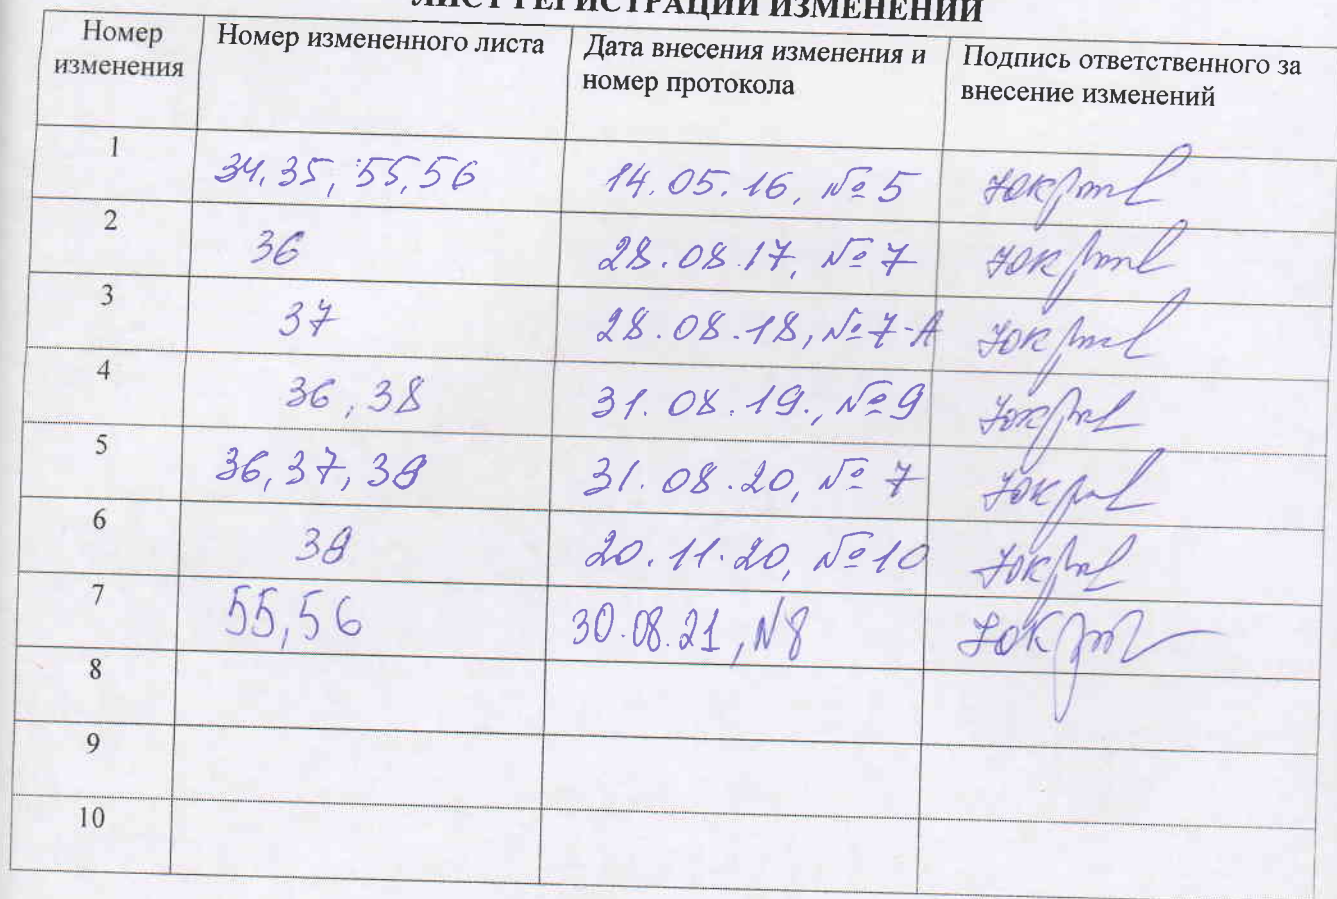 ЛИСТ РЕГИСТРАЦИИ ИЗМЕНЕНИЙ
Номер изменения
Номер измененного листа
Дата внесения изменения и номер протокола
Подпись ответственного за внесение изменений
1 34, 35, 55, 56 14.05.16, №5
2 36 28.08.17, №7
3 37 28.08.18, №7-А
4 36, 38 31.08.19., №9
5 36, 37, 38 31.08.20, №7
6 38 20.11.20, №10
7 55, 56 30.08.21, N8
8
9
10